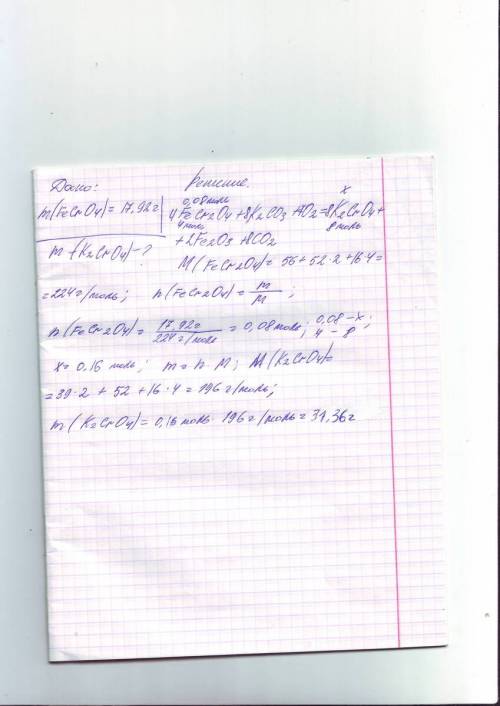 Дано:
Решение.
m(FeCrO4)=17,92г
0,08моль x
4FeCr2O4+8K2CO3+7O2=8K2CrO4+
4моль 8моль
+2Fe2O3+8CO2
m (K2CrO4)-?
M(FeCr2O4)=56+52·2+16·4=
=224г/моль; n(FeCr2O4)=m/M;
n(FeCr2O4)=17,92г/224г/моль=0,08моль; 0,08-x;
4-8
x=0,16 моль; m=n·M; M(K2CrO4)=
=39·2+52+16·4=196г/моль;
m(K2CrO4)=0,16моль·196г/моль=31,36г